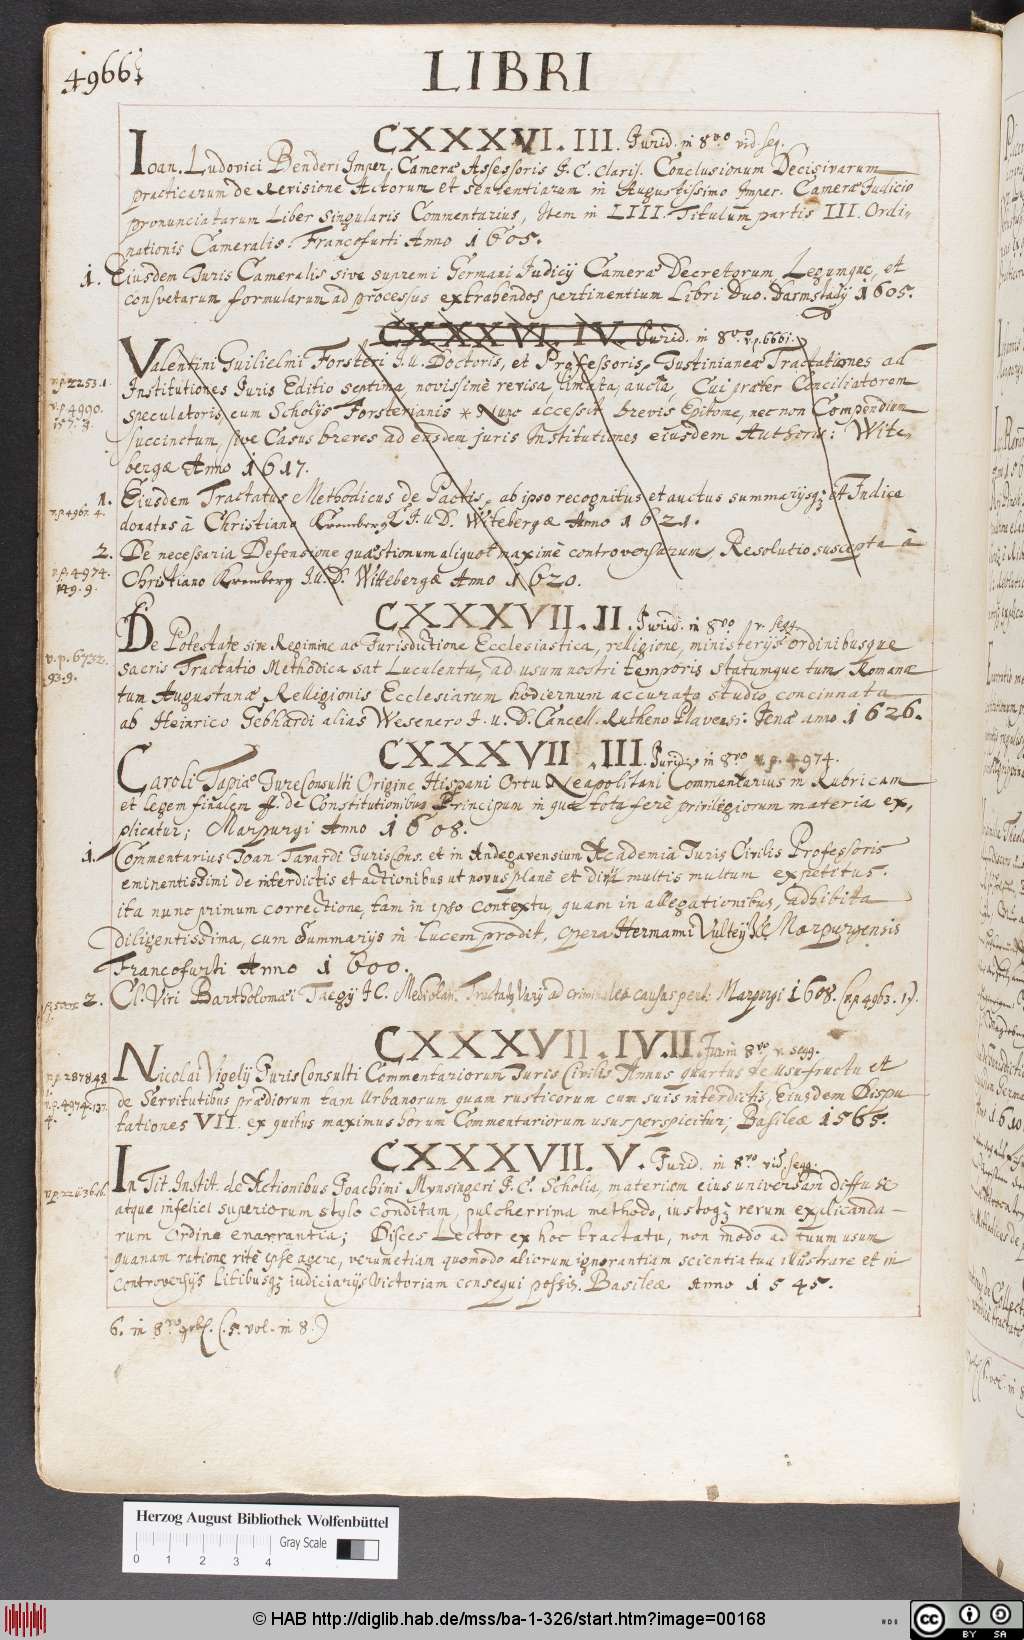 4966
LIBRI
CXXXVI. III. Jurid. in 8vo vid. seq.
Ioan. Ludovici Benderi Imper. Cameræ Assessoris J. C. Clariss. Conclusionum Decisivarum
practicarum de Revisione Actorum et sententiarum in Augustissimo Imper. Cameræ Judicio
pronunciatarum Liber singularis Commentarius, Item in LIII. Titulum partis III. Ordi-
nationis Cameralis. Francofurti Anno 1605.
1. Ejusdem Juris Cameralis sive supremi Germani Judicij Cameræ Decretorum Legumque, et
consvetarum formularum ad processus extrahendos pertinentium Libri Duo. Darmstadij 1605.
CXXXVI. IV. Jurid. in 8vo v.p. 6661.
Valentini Guilielmi Forsteri J.U. Doctoris, et Professoris, Justinianeæ Tractationes ad
v.p. 2253.1.
Institutiones Juris Editio septima novissimè revisa, limata, aucta, Cui præter Conciliatorem
v.p. 4990.
speculatoris, cum Scholijs Forsterianis * Nunc accessit brevis Epitome, nec non Compendium
succinctum, sive Casus breves ad easdem juris Institutiones ejusdem Authoris: Wite-
bergæ Anno 1617.
1. Ejusdem Tractatus Methodicus de Pactis, ab ipso recognitus et auctus summarijsq; et Indice
v.p. 4967. 4.
donatus à Christiano Kremberg J.U.D. Witebergæ Anno 1621.
2. De necessaria Defensione quæstionum aliquot maximè controversarum, Resolutio suscepta à
v.p. 4974.
149. 9.
Christiano Kremberg J.U.D. Wittebergæ Anno 1620.
CXXXVII. II. Jurid. in 8vo v. segg.
De Potestate sive Regimine ac Jurisdictione Ecclesiastica, religione, ministerijs ordinibusque
v.p. 6732.
93.9.
sacris Tractatio Methodica sat Luculenta, ad usum nostri temporis statumque tum Romanæ
tum Augustanæ Relligionis Ecclesiarum hodiernum accurato studio concinnata
ab Heinrico Gebhardi alias Wesenero J.U.D. Cancell. Rutheno Plavensi. Jenæ anno 1626.
CXXXVII. III. Jurid. in 8vo v.p. 4974.
Caroli Tapiæ JureConsulti Origine Hispani Ortu Neapolitani Commentarius in Rubricam
et legem finalem ff. de Constitutionibus Principum in quo tota ferè privilegiorum materia ex-
plicatur; Marpurgi Anno 1608.
1. Commentarius Joan. Tavardi Juriscons. et in Andegavensium Academia Juris Civilis Professoris
eminentissimi de interdictis et actionibus ut novus planè et diu multis multum expetitus.
ita nunc primum correctione, tam in ipso contextu, quam in allegationibus, adhibita
diligentissima, cum Summarijs in lucem prodit, opera Hermanni Vulteij JC. Marpurgensis
Francofurti Anno 1600.
2. Cl. Viri Bartholomæi Taegij J.C. Mediolan. Tractatq Varij ad criminales causas pert. Marpurgi 1608. (v.p. 4963. 1).
CXXXVII. IV. II. Jur. in 8vo v. segg.
v.p. 2878.48.
Nicolai Vigelij JurisConsulti Commentariorum Juris Civilis Annus quartus de Usufructu et
v.p. 4974. 137.
4.
de Servitutibus prædiorum tam Urbanorum quam rusticorum cum suis interdictis, Ejusdem Dispu-
tationes VII. ex quibus maximus horum Commentariorum usus perspicitur; Basileæ 1565.
CXXXVII. V. Jurid. in 8vo vid. segg.
In Tit. Instit. de Actionibus Joachimi Mynsingeri J.C. Scholia, materiam ejus universam diffuse
atque infelici superiorum stylo conditam, pulcherrima methodo, justoq; rerum explicanda-
rum ordine enarrantia; Disces Lector ex hoc tractatu, non modo ad tuum usum
quanam ratione ritè ipse agere, verumetiam quomodo aliorum ignorantiam scientia tua illustrare et in
controversijs litibusq; judiciarijs Victoriam consequi possis. Basileæ Anno 1545.
6. in 8vo (.5. vol. in 8.)
Herzog August Bibliothek Wolfenbüttel
Gray Scale
0 1 2 3 4
© HAB http://diglib.hab.de/mss/ba-1-326/start.htm?image=00168
cc BY SA